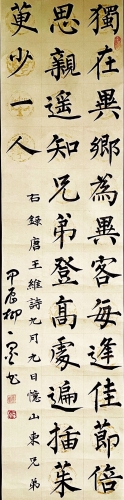 獨在異鄉為異客每逢佳節倍
思親遥知兄弟登高處遍插茱
萸少一人
右錄唐王維詩九月九日憶山東兄弟
甲辰柳